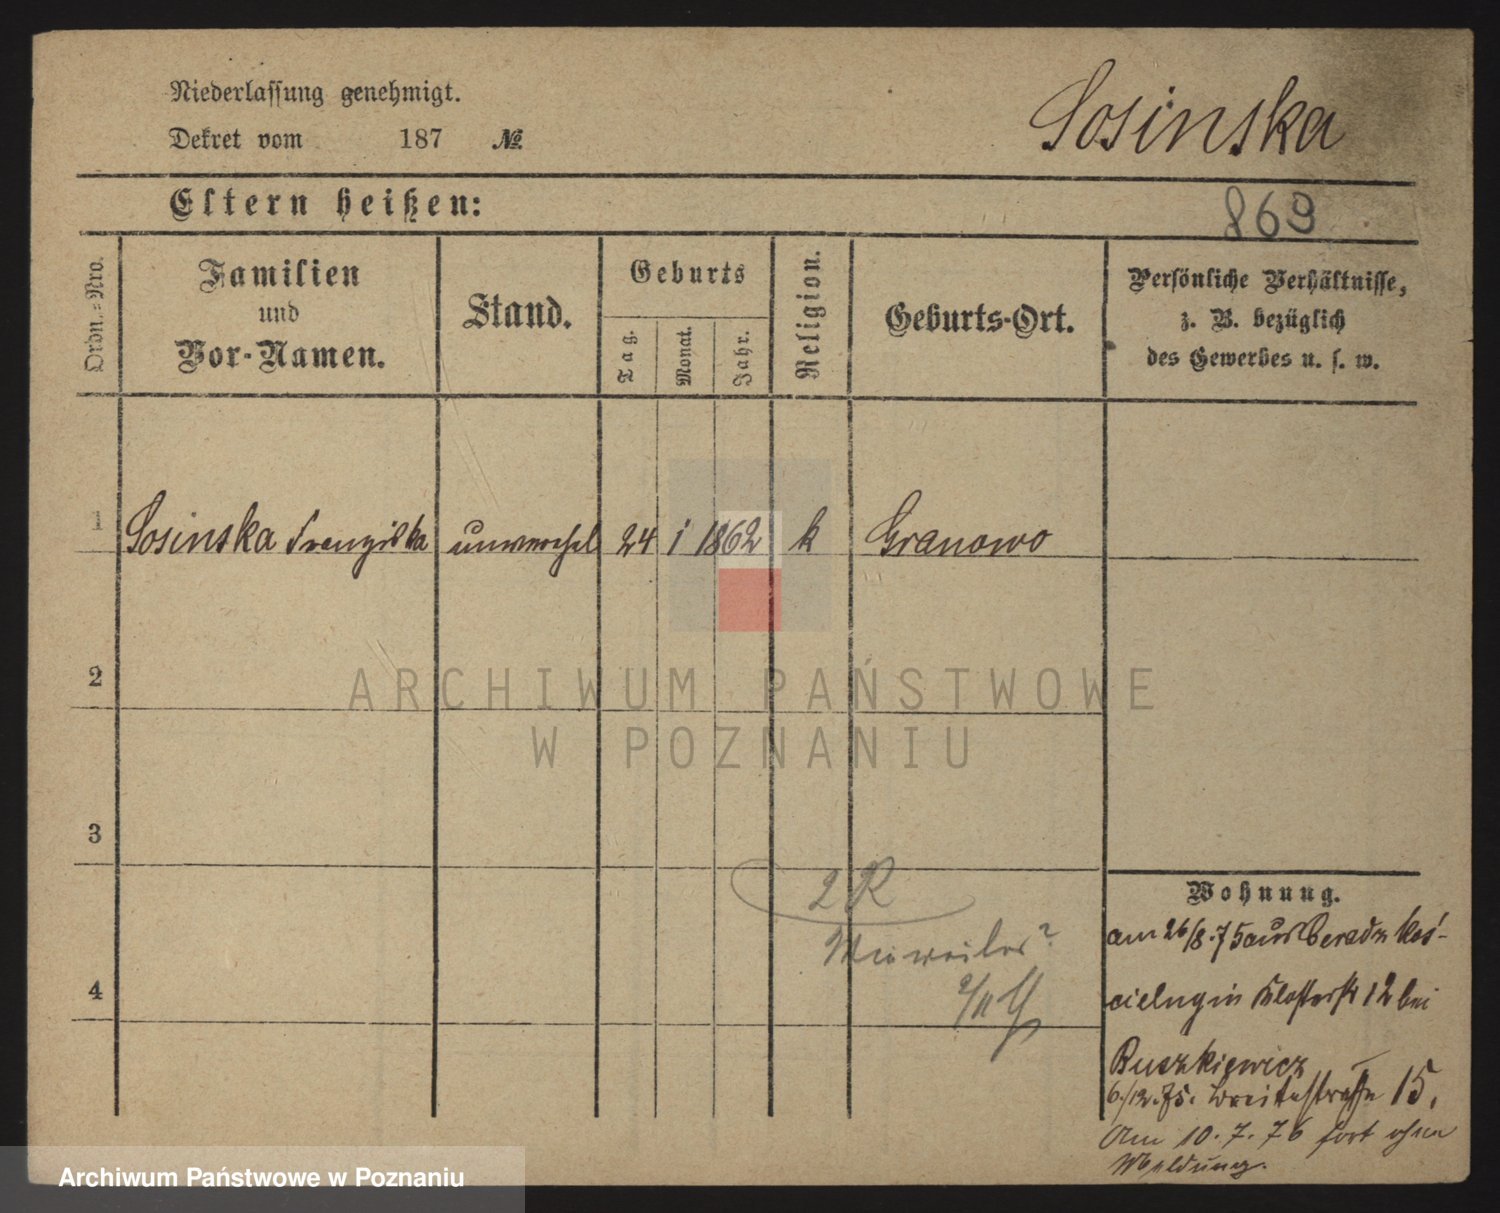 Niederlassung genehmigt.
Dekret vom 187 №
Sosinska
Eltern heißen:
869
Ordn.-Nro.
Familien
und
Vor-Namen.
Stand.
Geburts
Tag.
Monat.
Jahr.
Religion.
Geburts-Ort.
Persönliche Verhältnisse,
z. B. bezüglich
des Gewerbes u. s. w.
1 Sosinska Franziska unverehel 24 1 1862 k Granowo
2
ARCHIWUM PAŃSTWOWE
W POZNANIU
3
2 R
4
Wohnung.
am 26/8.75 aus
in Klosterstr 12 bei
Ruszkiewicz
6/12.75. Breitestraße 15.
Am 10.7.76 fort ohne
Meldung.
Archiwum Państwowe w Poznaniu